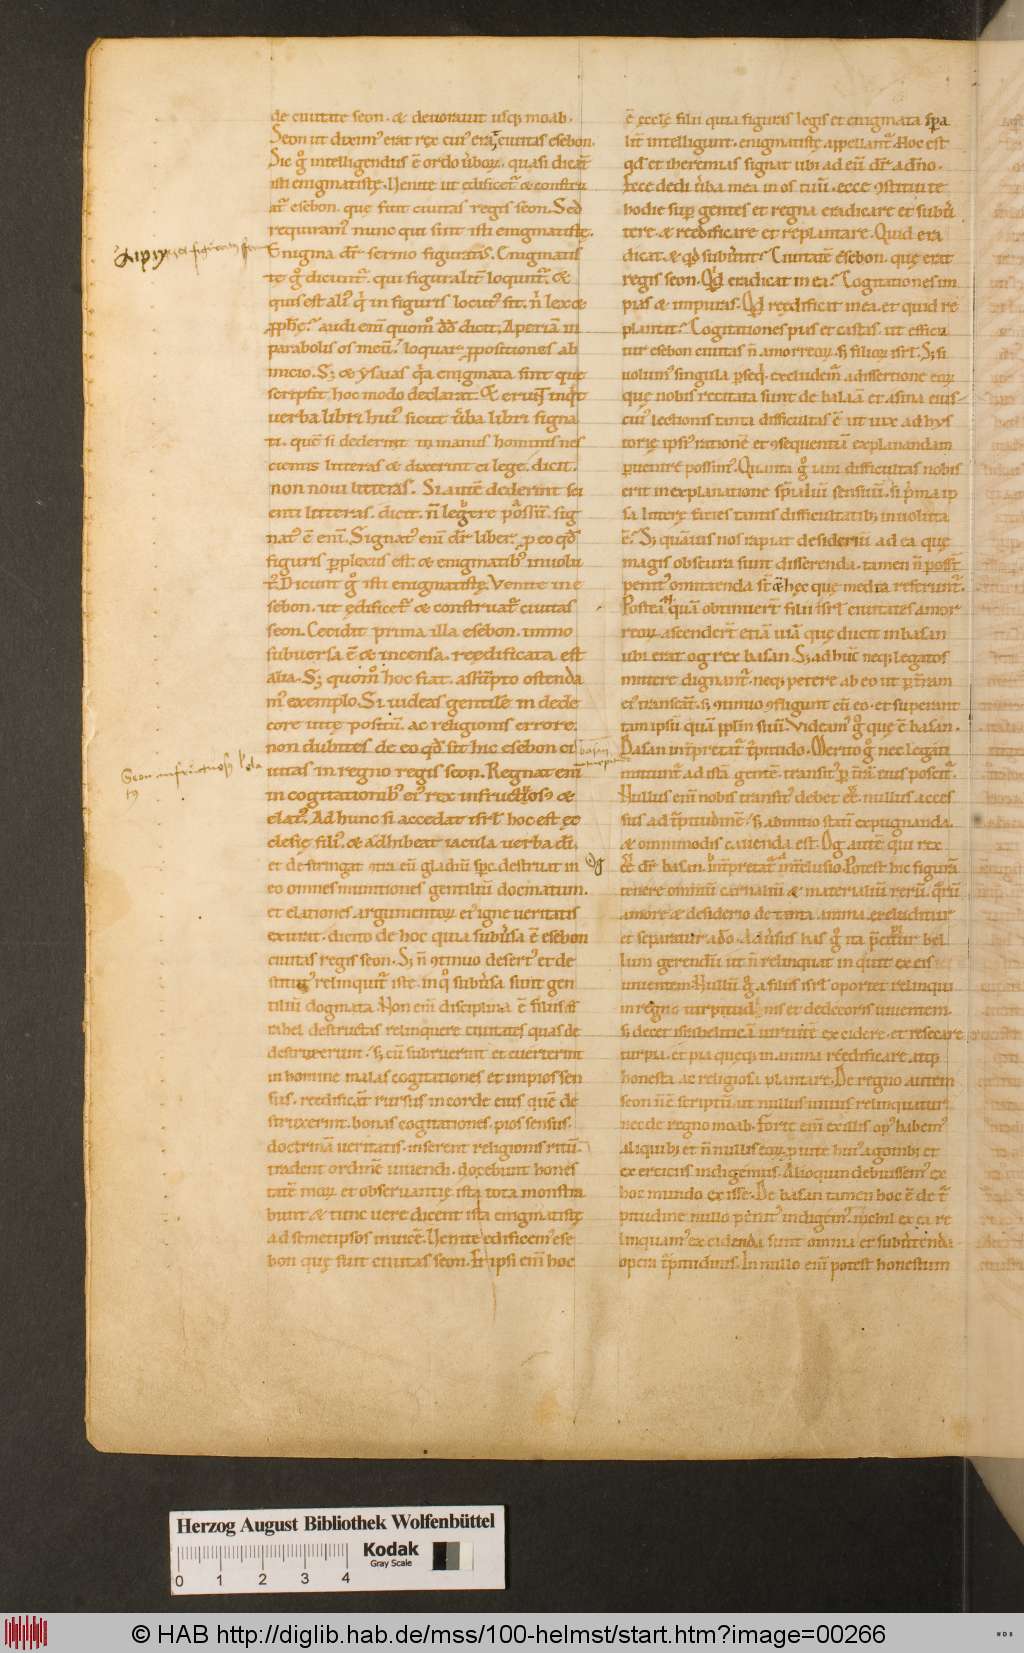 de ciuitate seon. & deuorauit usq; moab.
Seon ut diximꝰ erat rex cuiꝰ erat ciuitas esebon.
Sic gͦ intelligendus ē ordo ùboꝝ. quasi dicat̄
isti enigmatistę. Uenite ut edificet᷑ & constru
at᷑ esebon. que fuit ciuitas regis seon. Sed
requiramꝰ nunc qui sint isti enigmatistę.
Enigma dr̄ sermo figuratus. Enigmatis
te gͦ dicunt᷑. qui figuralit̄ loqunt᷑. &
quis est aliꝰ q̇ in figuris locutꝰ sit. n̄ lex &
ꝓph̄ę? audi eni̅ quom̊ dd̄ dicit; Aperiā in
parabolis os meū. loquar ꝓpositiones ab
inicio. Sꝫ & ysaias q̇a enigmata sint que
scripsit hoc modo declarat. Et erunt̄ inq̇t
uerba libri huiꝰ sicut ùba libri signa
ti. quē si dederint in manus hominis nes
cientis litteras & dixerint ei lege. dicit.
non noui litteras. Si autē dederint sci
enti litteras. dicit. n̄ legere possū. sig
natꝰ ē eni̅. Signatꝰ eni̅ dr̄ liber. p eo qd̄
figuris ꝑplexus est. & enigmatibꝰ inuolu
tꝰ. Dicunt gͦ isti enigmatistę. Venite in e
sebon. ut ędificet᷑ & construat᷑ ciuitas
seon. Cecidit prima illa esebon. immo
subuersa ē & incensa. reędificata est
alia. Sꝫ quom̊ hoc fiat. assūpto ostenda
mꝰ exemplo. Si uideas gentilē in dede
core uitę positū. ac religionis errore.
non dubites de eo qd̄ sit hic esebon ci
uitas in regno regis seon. Regnat eni̅
in cogitationibꝰ eiꝰ rex infructuosꝰ &
elatꝰ. Ad hunc si accedat isrl̄ hoc est ec
clesię filiꝰ. & adhibeat iacula uerba dī.
et destringat ītra eū gladiū sp̄c. destruat in
eo omnes munitiones gentiliū docmatum.
et elationes argumentoꝝ eiꝰ igne ueritatis
exurat. dicito de hoc quia subùsa ē esebon
ciuitas regis seon. Sꝫ n̄ ꝯtinuo desertꝰ et de
stitutꝰ relinquit᷑ iste. in qͦ subùsa sunt gen
tiliū dogmata. Non eni̅ disciplina ē filiis is
rahel destructas relinquere ciuitates quas de
destruxerunt. sꝫ cū subruerint et euerterint
in homine malas cogitationes et impios sen
sus. reedificāt rursus in corde eius quē de
struxerint. bonas cogitationes. pios sensus.
doctrinā ueritatis. inserent religionis ritū.
tradent ordinē uiuendi. docebunt hones
tatē moꝝ et obseruantię. ista tota monstra
bunt & tunc uere dicent ista enigmatistę
ad semetipsos inuicē. Uenite edificem̄ ese
bon que fuit ciuitas seon. Et ipsi eni̅ hoc
ē ęcclę filii quia figuras legis et enigmata spa
lit̄ intelligunt. enigmatistę appellant᷑. Hoc est
qd̄ et iheremias signat ubi ad eū dr̄ a dn̄o.
Ecce dedi ùba mea in os tuū. ecce ꝯstitui te
hodie sup gentes et regna eradicare et subù
tere & reędificare et replantare. Quid era
dicat. & qd̄ subùtit? Ciuitatē esebon. quę erat
regis seon. Qd̄ eradicat in ea? Cogitationes im
pias & impuras. Qd̄ reędificat in ea. et quid re
plantat? Cogitationes pias et castas. ut effici
tur esebon ciuitas n̄ amorreoꝝ. sꝫ filioꝝ isrl̄. Sꝫ si
uolumꝰ singula ꝑseq̇. excludemꝰ. a dissertione eoꝝ
quę nobis recitata sunt de balaā et asina eius
cuiꝰ lectionis tanta difficultas ē ut uix ad hys
torię ipsiꝰ rationē et ꝯsequentiā explanandam
ꝑuenire possimꝰ. Quanta gͦ iam difficultas nobis
erit in explanatione sp̄aliū sensuū. si prima ip
sa litterę facies tantis difficultatibꝫ inuoluta
ē. Sꝫ quāuis nos rapiat desideriū ad ea quę
magis obscura sunt disserenda. tamen n̄ possūt
penitꝰ omittenda sū hęc quę media referunt᷑.
Postea quā obtinuert̄ filii isrl̄ ciuitates amor
reoꝝ. ascendert̄ etiā uiā quę ducit in basan
ubi erat og rex basan. Sꝫ ad hūc neqꝫ legatos
mittere dignant᷑. neqꝫ petere ab eo ut ꝑ t̄ram
eiꝰ transeāt. sꝫ ꝯtinuo ꝯfligunt cū eo. et superant
tam ipsū quā pplm̄ suū. Videamꝰ gͦ quę ē basan.
Basan int̄pretat᷑ t̄pitudo. Merito gͦ nec legati
mittunt᷑ ad istā gentē. transitꝰ ꝑ t̄rā eius poscit᷑.
Nullus eni̅ nobis transitꝰ debet eē. nullus acces
sus ad t̄pitudinē. sꝫ ab initio statī expugnanda.
& omnimodis cauenda est. Og autē qui rex
eē dr̄ basan. int̄pretat᷑ int̄clusio. Potest hic figurā
tenere omniū carnaliū & materialiū rerū. quarū
amore & desiderio detenta anima excluditur
et separatur a do. Aduersus has gͦ ita pcipitur bel
lum gerendū ut n̄ relinquat inquit ex eis
uiuentem. Nullū gͦ a filiis isrl̄ oportet relinqui
in regno turpitudinis et dedecoris uiuentem.
sꝫ decet israheliticā uirtutē excidere. et resecare
turpia. et pia queqꝫ in anima reedificare. atqꝫ
honesta ac religiosa plantare. De regno autem
seon n̄ ē scriptū ut nullus uiuus relinquatur
nec de regno moab. Forte eni̅ ex illis opꝰ habemꝰ
aliquibꝫ et n̄ nullis eoꝝ ꝑ uite huiꝰ agonibꝫ et
exercitiis indigemus. Alioquin debuissemꝰ ex
hoc mundo exisse. De basan tamen hoc ē de t᷑
pitudine nullo penitꝰ indigemꝰ. nichil ex ea re
linquam̄ excidenda sunt omnia et subùtenda
opera t̄pitudinis. In nullo eni̅ potest honestum
basan
turpitudo
Og
Herzog August Bibliothek Wolfenbüttel
Kodak
Gray Scale
0 1 2 3 4
© HAB http://diglib.hab.de/mss/100-helmst/start.htm?image=00266